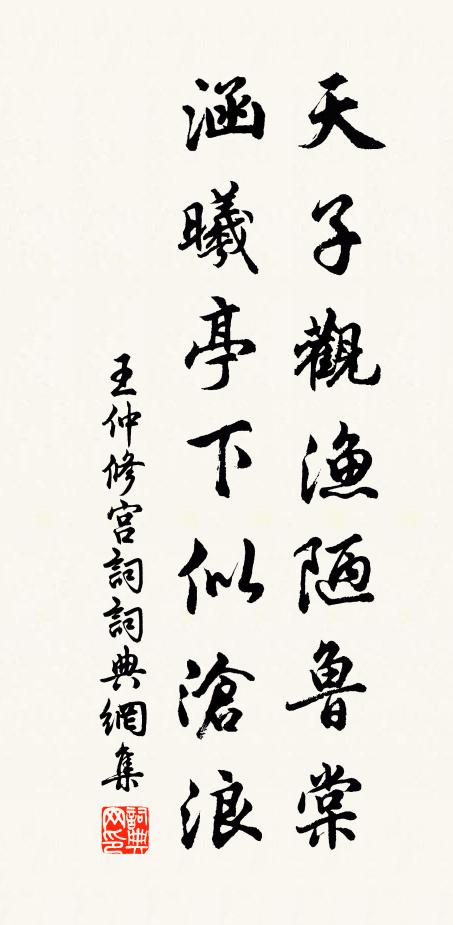 天子觀漁陋魯棠
涵曦亭下似滄浪
王仲修宮詞詞典網集
詞典網印